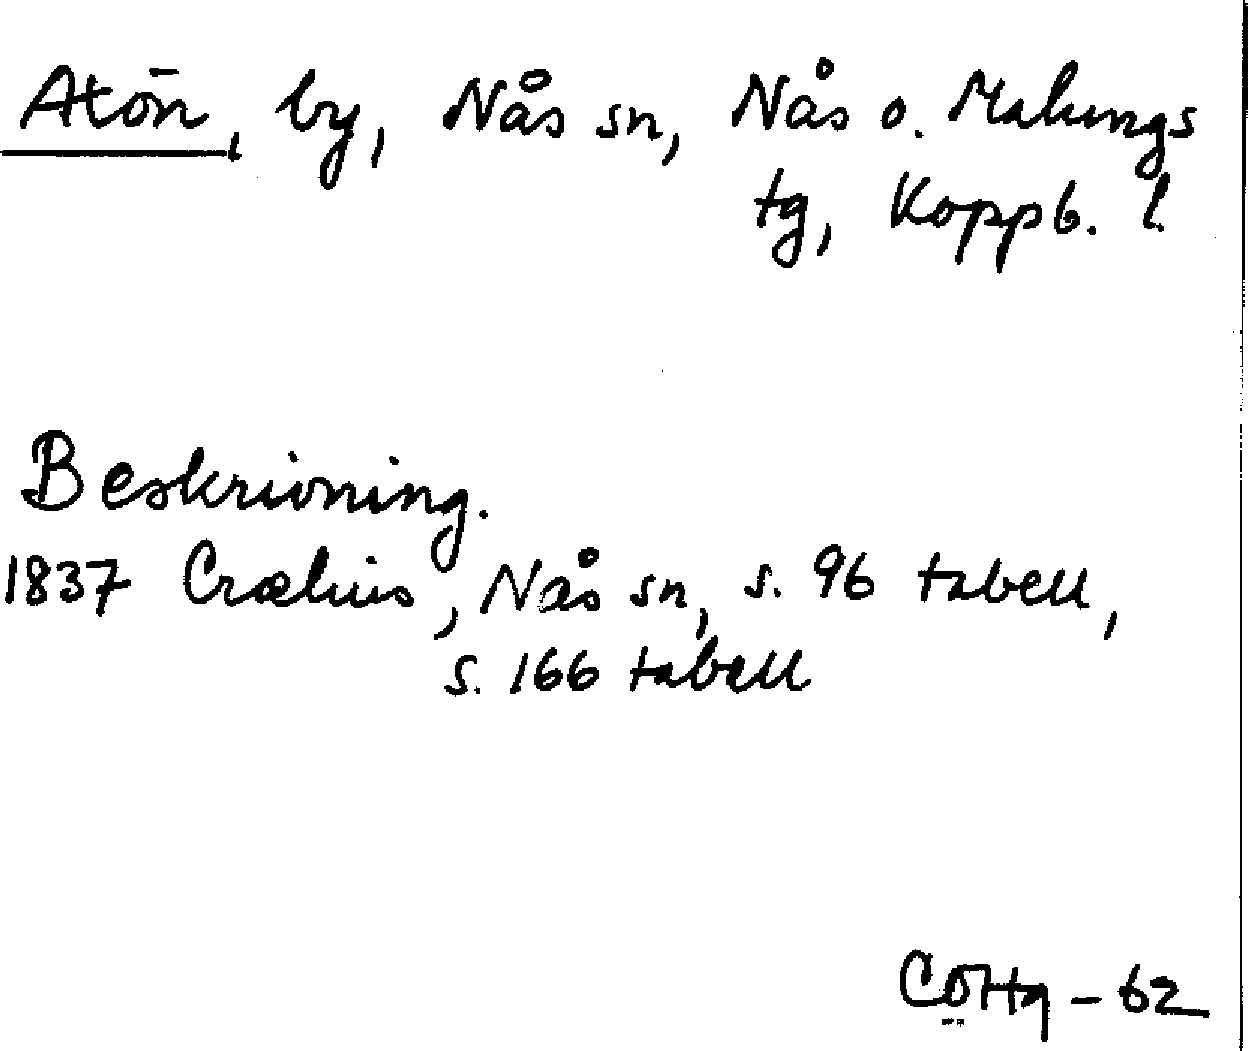 Atön, by, Nås sn, Nås o. Malungs
tg, Koppb. l.
Beskrivning.
1837 Crælius, Nås sn, s. 96 tabell,
s. 166 tabell